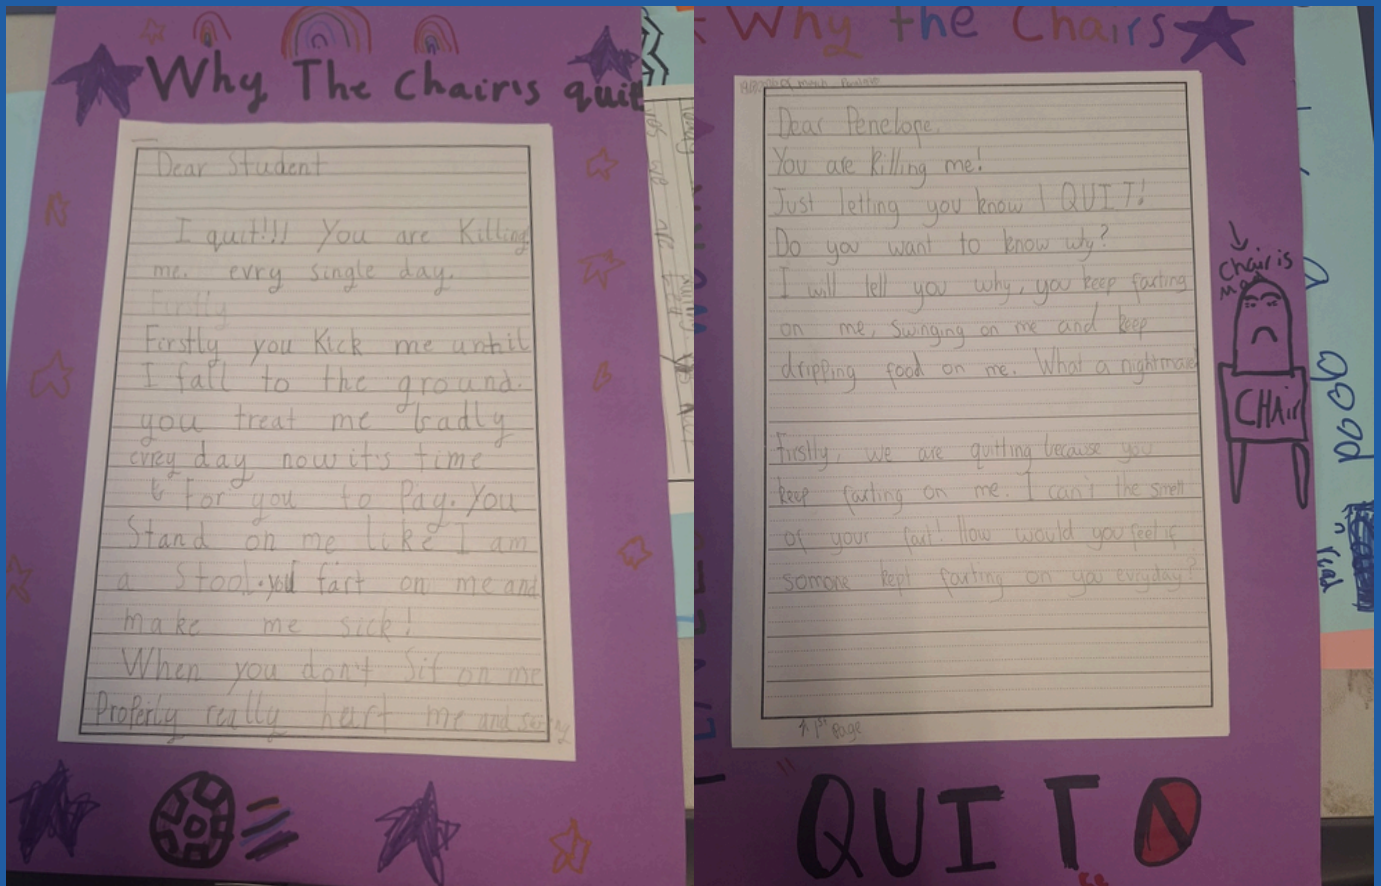 Why The Chair's quit
Dear Student
I quit!!! You are Killing
me. evry single day.
Firstly
Firstly you Kick me until
I fall to the ground.
you treat me badly
evrey day now it's time
For you to Pay. You
Stand on me like I am
a Stool. you fart on me and
make me sick!
When you don't Sit on me
Properly really hurt me and
Why the Chairs
Dear Penelope,
You are killing me!
Just letting you know I QUIT!
Do you want to know why?
I will tell you why, you keep farting
on me, swinging on me and keep
dripping food on me. What a nightmare
firstly, we are quitting because you
keep farting on me. I can't the smell
of your fart! How would you feel if
somone kept farting on you everyday?
1st Page
Chair is
CHAir
QUIT
a good